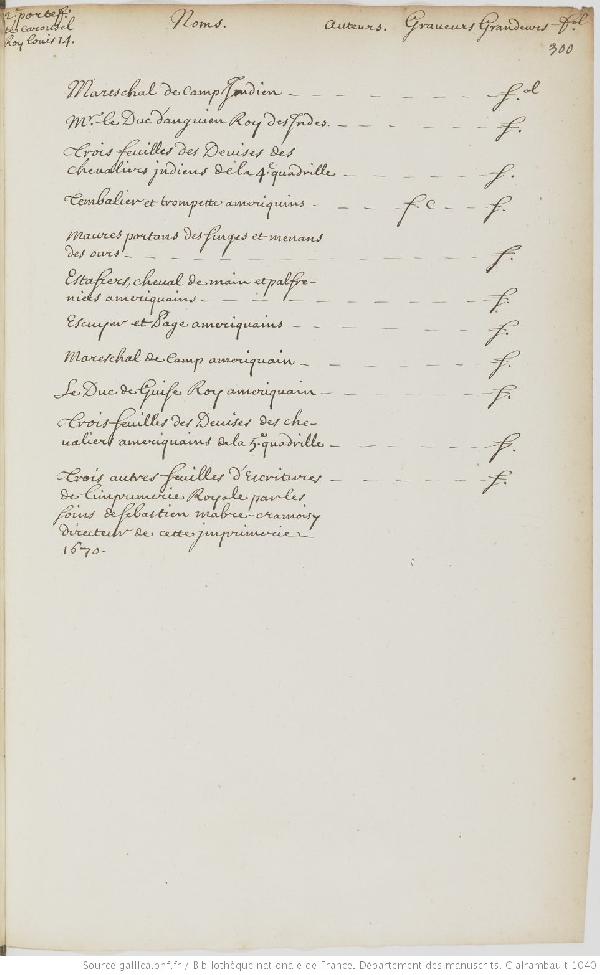 2e porteff.
du carousel
Roy Louis 14.
Noms. Auteurs. Graveurs Grandeurs fol
300
Mareschal de Camp Jndien f.ol
Mr. le Duc d'anguien Roy des Jndes. f.
Trois feuilles des Deuises des
chevaliers jndiens de la 4e quadrille f.
Tembalier et trompette ameriquins f. C f.
Maures portans des singes et menans
des ours f.
Estafiers, cheval de main et palfre-
niers ameriquains f.
Escuyer et Page ameriquains f.
Mareschal de Camp ameriquain f.
Le Duc de Guise Roy ameriquain f.
Trois feuilles des Deuises des che-
ualiers ameriquains de la 5e quadrille f.
Trois autres feuilles d'Escritures f.
de l'imprimerie Royale par les
soins de sebastien mabre-cramoisy
directeur de cette jmprimerie
1670.
Source gallica.bnf.fr / Bibliothèque nationale de France. Département des manuscrits. Clairambault 1040